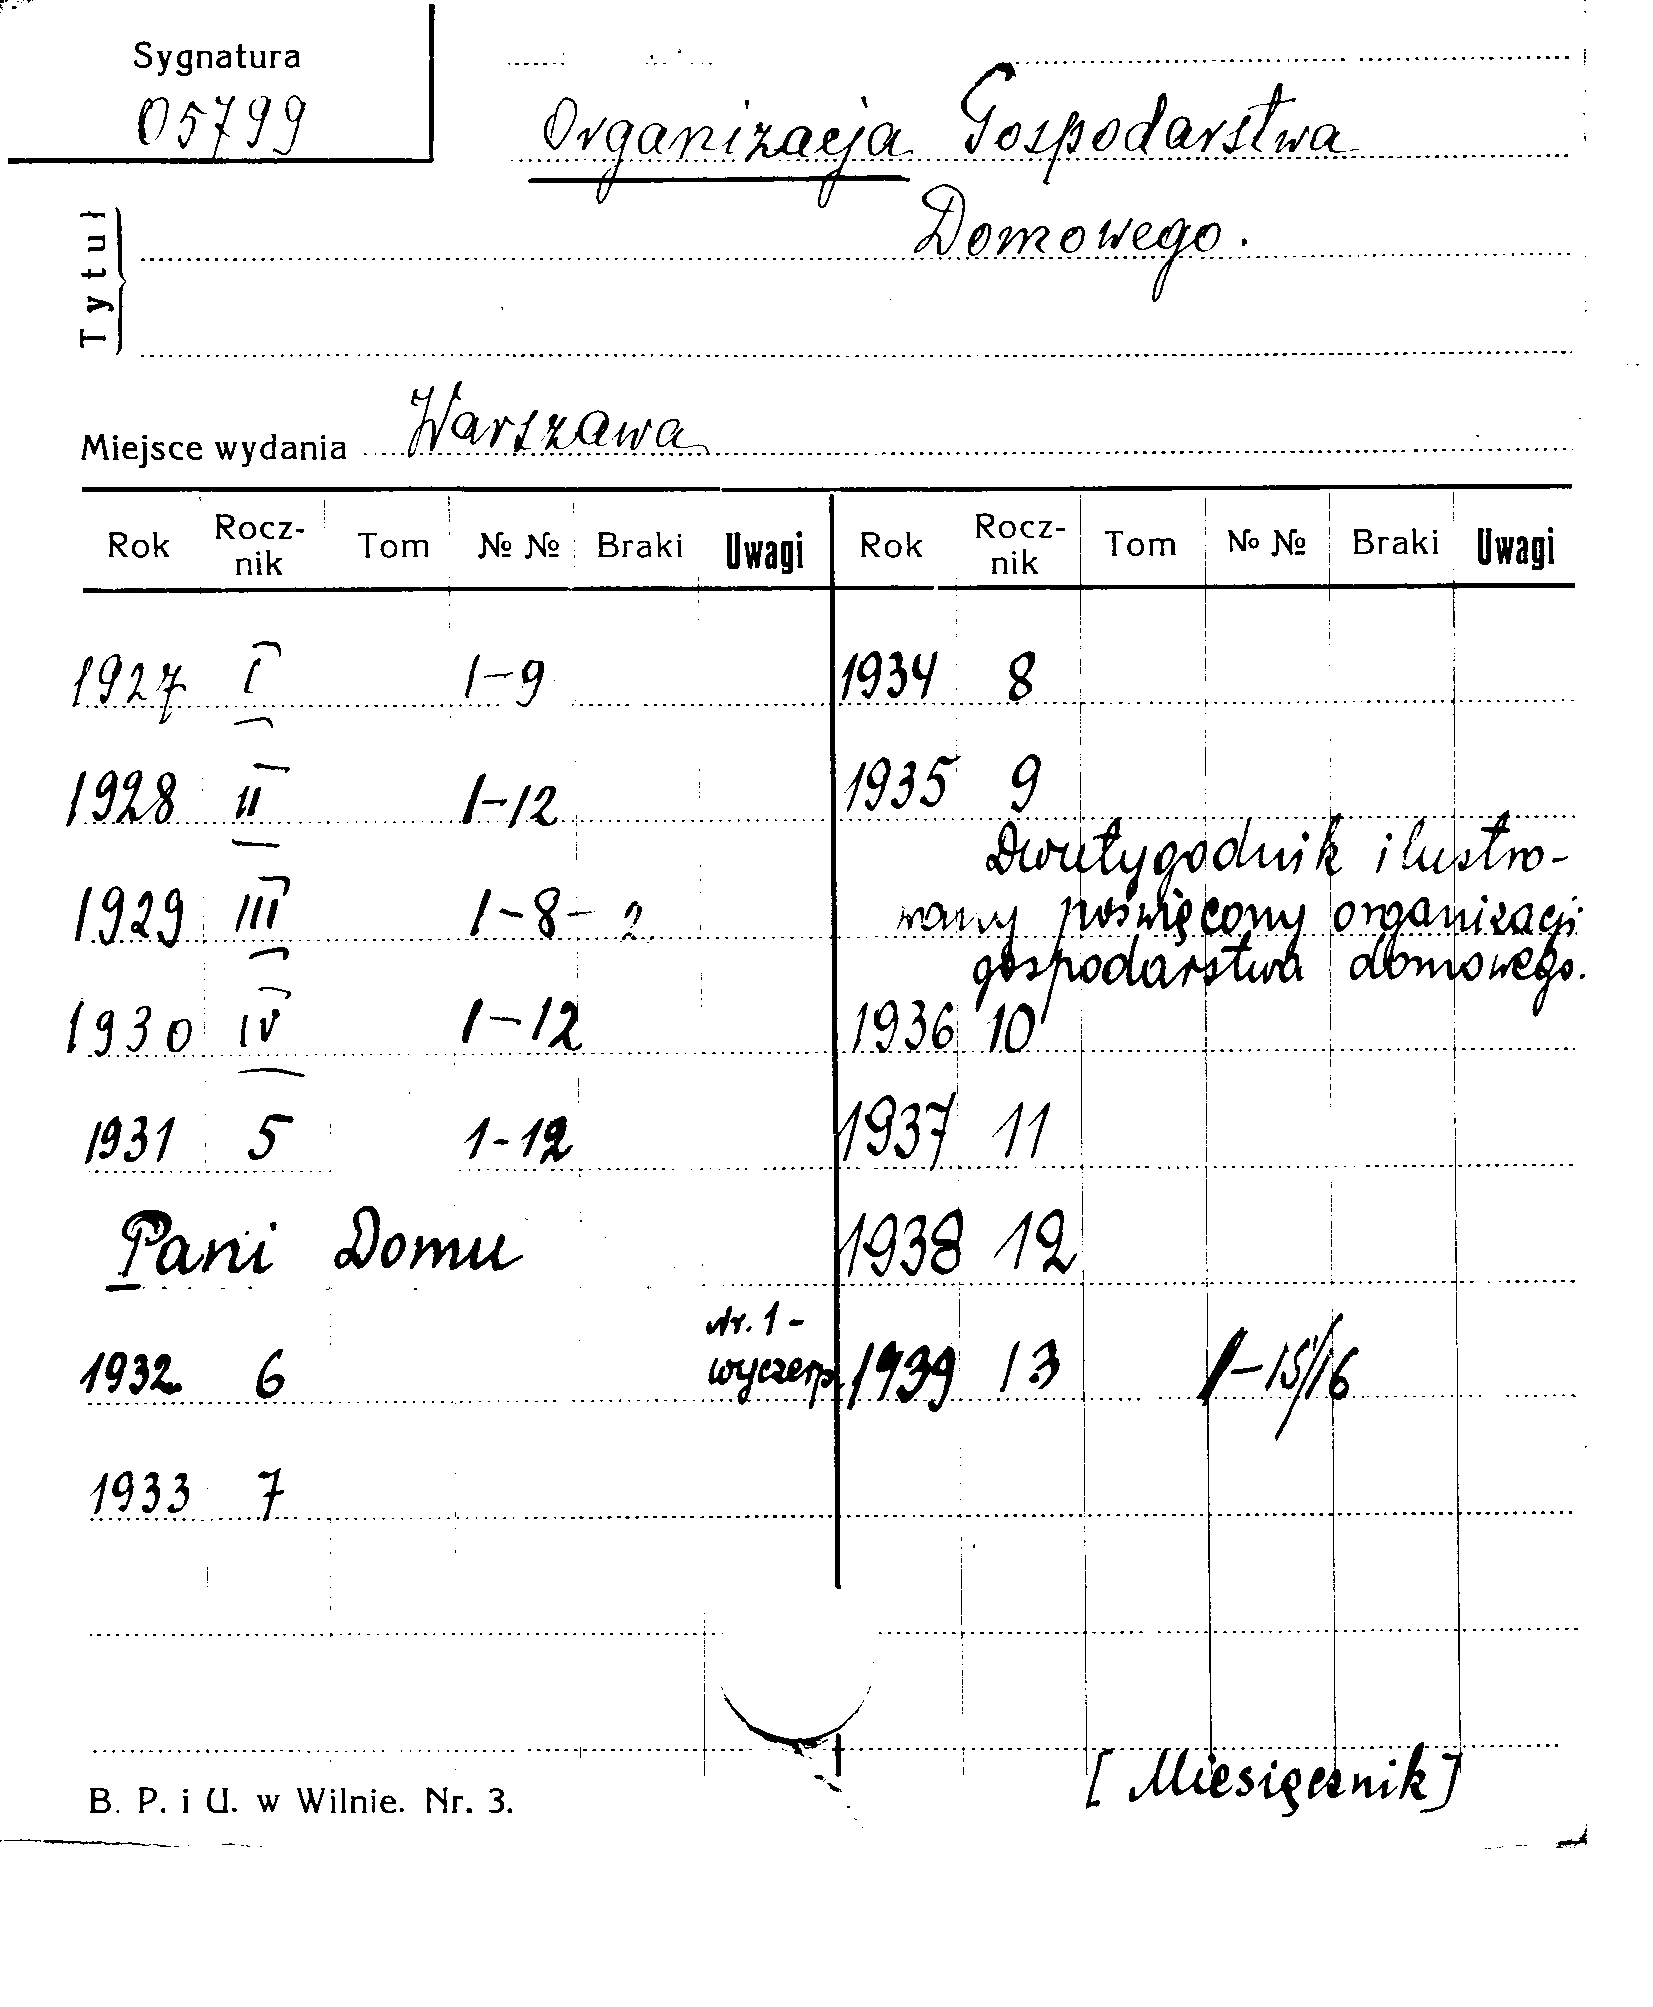 Sygnatura
05799
Organizacja Gospodarstwa
Domowego.
Tytuł
Miejsce wydania Warszawa
Rok Rocz-nik Tom № № Braki Uwagi Rok Rocz-nik Tom № № Braki Uwagi
1927 I 1-9 1934 8
1928 II 1-12 1935 9
Dwutygodnik ilustro-
1929 III 1-8- 2. wany poświęcony organizacji
gospodarstwa domowego.
1930 IV 1-12 1936 10
1931 5 1-12 1937 11
Pani Domu 1938 12
nr. 1-
1932 6 wyczerp. 1939 13 1-15/16
1933 7
[Miesięcznik]
B. P. i U. w Wilnie. Nr. 3.